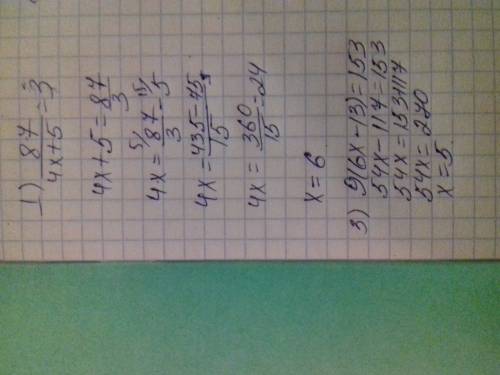 1) 87/4x+5=3
4x+5=87/3
4x=87/3-5
4x=435-75/15
4x=360/15=24
x=6
3) 9(6x-13)=153
54x-117=153
54x=153+117
54x=270
x=5